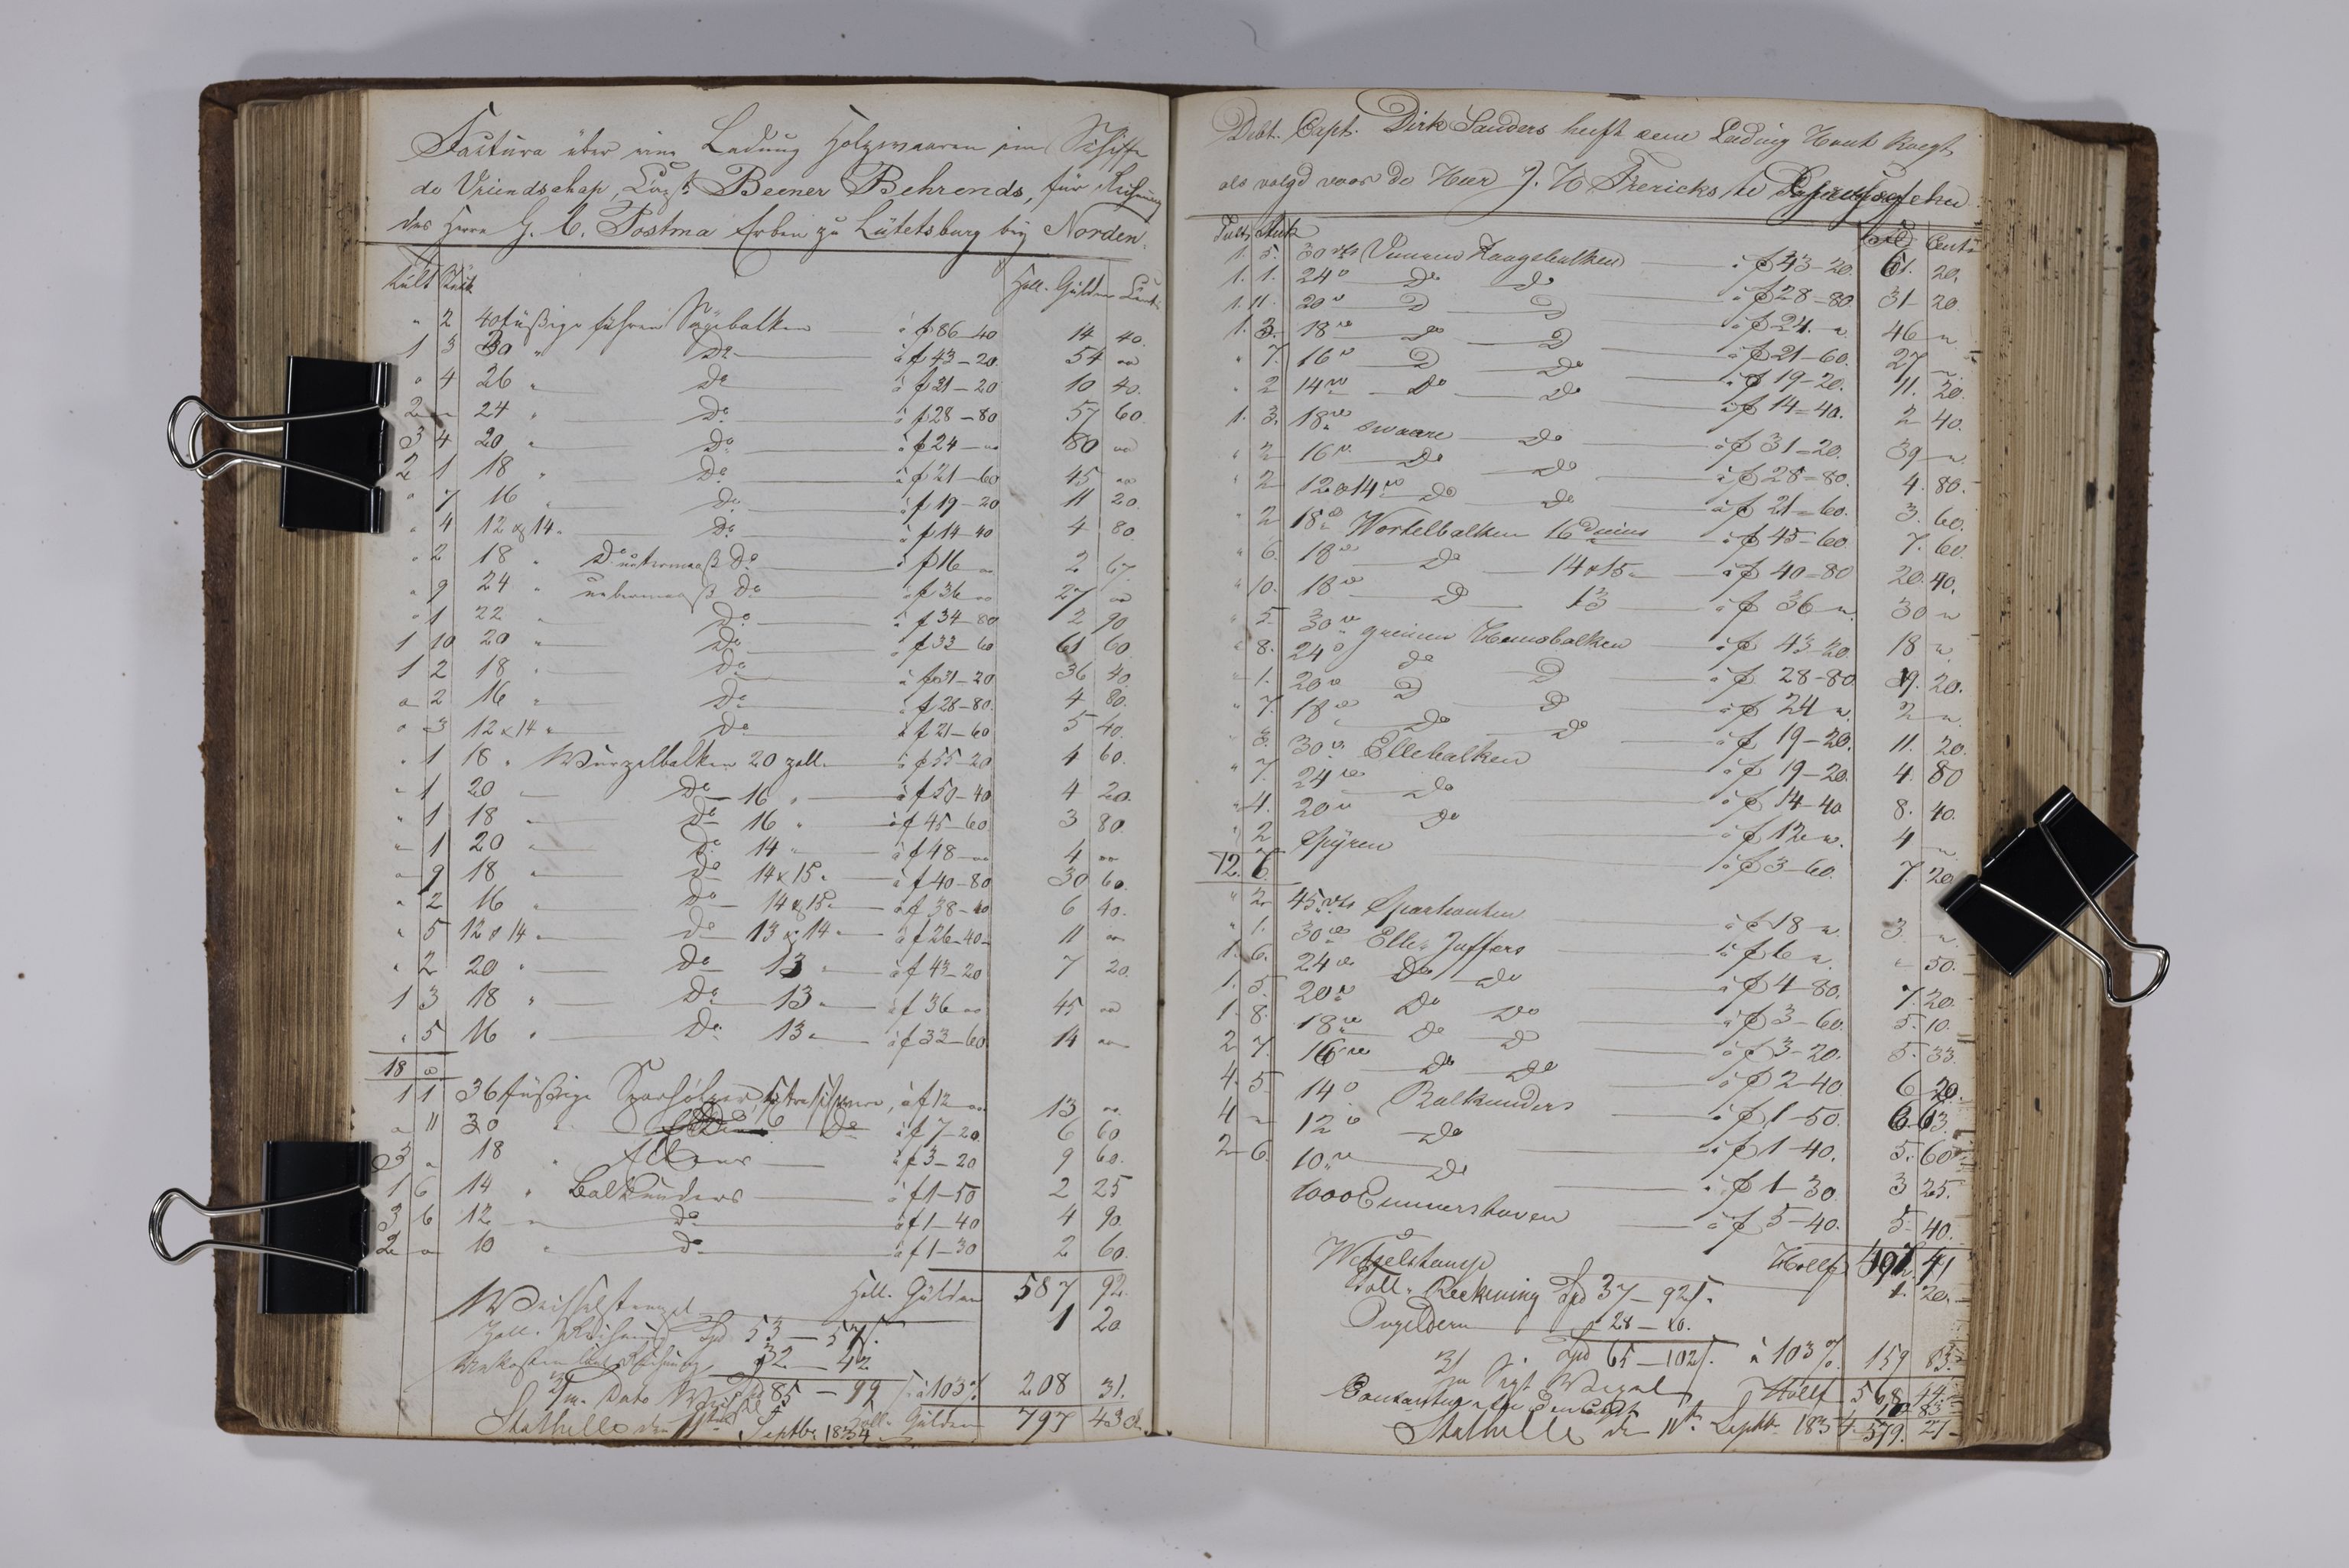 Factura über eine Ladung Holzwaaren im Schiffe
de Vriendschap, Capt. Beener Behrends, für Rechnung
des Herrn G. C. Postma Erben zu Lütetsburg bey Norden.
Tült Stück Holl. Gülden Cents
" 2 40 füßige führen Sägebalken à f 86-40 14 40.
1 3 30 " Do à f 43-20. 54 "
" 4 26 " Do à f 31-20 10 40.
2 " 24 " Do à f 28-80 57 60
3 4 20 " Do à f 24-" 80 "
2 1 18 " Do à f 21-60 45 "
" 7 16 " Do à f 19-20 11 20.
" 4 12 & 14 " Do à f 14-40 4 80.
" 2 18 " Do untermaaß Do à f 16 " 2 67.
" 9 24 " uebermaaß Do à f 36 " 27 "
" 1 22 " Do à f 34-80 2 90
1 10 20 " Do à f 33-60 61 60.
1 2 18 " Do à f 31-20 36 40.
" 2 16 " Do à f 28-80. 4 80.
" 3 12 x 14 " Do à f 21-60 5 40.
" 1 18 " Wurzelbalken 20 zoll. à f 55-20 4 60.
" 1 20 " Do 16 " à f 50-40 4 20.
" 1 18 " Do 16 " à f 45-60 3 80.
" 1 20 " Do 14 " à f 48-" 4 "
" 9 18 " Do 14 x 15 " à f 40-80 30 60.
" 2 16 " Do 14 & 15 " à f 38-40 6 40.
" 5 12 & 14 " Do 13 & 14 " à f 26-40 11 "
" 2 20 " Do 13 " à f 43-20 7 20.
1 3 18 " Do 13 " à f 36 " 45 "
" 5 16 " Do 13 " à f 33-60 14 "
18 "
1 1 36 füßige Sparhölzer, à f 12 " 13 "
" 11 30 " Do à f 7-20. 6 60
3 " 18 " Ellens à f 3-20 9 60.
1 6 14 " Balkunders à f 1-50 2 25
3 6 12 " Do à f 1-40 4 90.
2 " 10 " Do à f 1-30 2 60.
Holl. Gülden 587 92.
Weisselstempel 1 20
Zoll. Rechnung Spd 53-57/.
Unkosten laut Rechnung 32-42
2/m. Dato Wechsel Spd 85-99/. à 103% 208 31.
Holl. Gülden 797 43 c.
Stathelle den 11ten Septbr. 1834
Debt. Capt. Dirk Sanders heeft eene Lading Hout Koegt
als volgd voor de Heer J. H. Frericks te
Tult Stuk Gld Cents
1. 5. 30 vts Vuuren Zaagsbalken à f 43-20. 61. 20.
1. 1. 24 " Do Do à f 28-80. 31 20
1. 11. 20 " D D à f 24. " 46 "
1. 3. 18 ve Do D à f 21-60. 27 "
" 7. 16 " D Do à f 19-20. 11. 20.
" 2 14 ve Do Do à f 14-40. 2 40.
1. 3. 18 ve swaare Do à f 31-20. 39 "
" 2 16 " Do Do à f 28-80. 4. 80.
" 2 12 & 14 ve Do Do à f 21-60. 3. 60.
" 2 18 " Wortelbalken 16 duims à f 45-60 7. 60.
" 6. 18 ve Do 14 & 15 " à f 40-80 20. 40.
" 10. 18 ve D 13 à f 36 " 30 "
" 5. 30 ve greinen Hemsbalken à f 43-20 18 "
" 8. 24 " Do D à f 28-80 19. 20.
" 1. 20 ve D D à f 24 " 2 "
" 7. 18 ve Do Do à f 19-20. 11. 20.
" 3. 30 ve Ellebalken à f 19-20. 4. 80
" 7. 24 ve Do à f 14-40 8. 40.
" 4. 20 " Do à f 12 " 4 "
" 2 Spÿren à f 3-60. 7. 20
12. 6.
" 2 45 vts Sparhouten à f 18 " 3 "
" 1. 30 ve Elle Juffers à f 6 " " 50.
1. 6. 24 ve Do Do à f 4-80. 7. 20.
1. 5. 20 ve Do Do à f 3-60. 5. 10.
1. 8. 18 ve Do D à f 3-20. 5. 33.
2 7. 16 ve Do Do à f 2-40 6 20.
4. 5 14 " Balkunders à f 1-50. 6. 63.
4 " 12 " Do à f 1-40. 5. 60
2 6. 10 ve Do à f 1-30 3 25.
1000 Emmershoven à f 5-40. 5. 40.
Hollf 41
Wesselstemp 1. 20.
Toll. Reckening Spd 37-92/.
Ongeldern 28-10.
Spd 65-102/. à 103% 159 83.
3/m Sigt Wexel Hollf 568 44
Stathelle den 11th Septbr 1834 579. 21